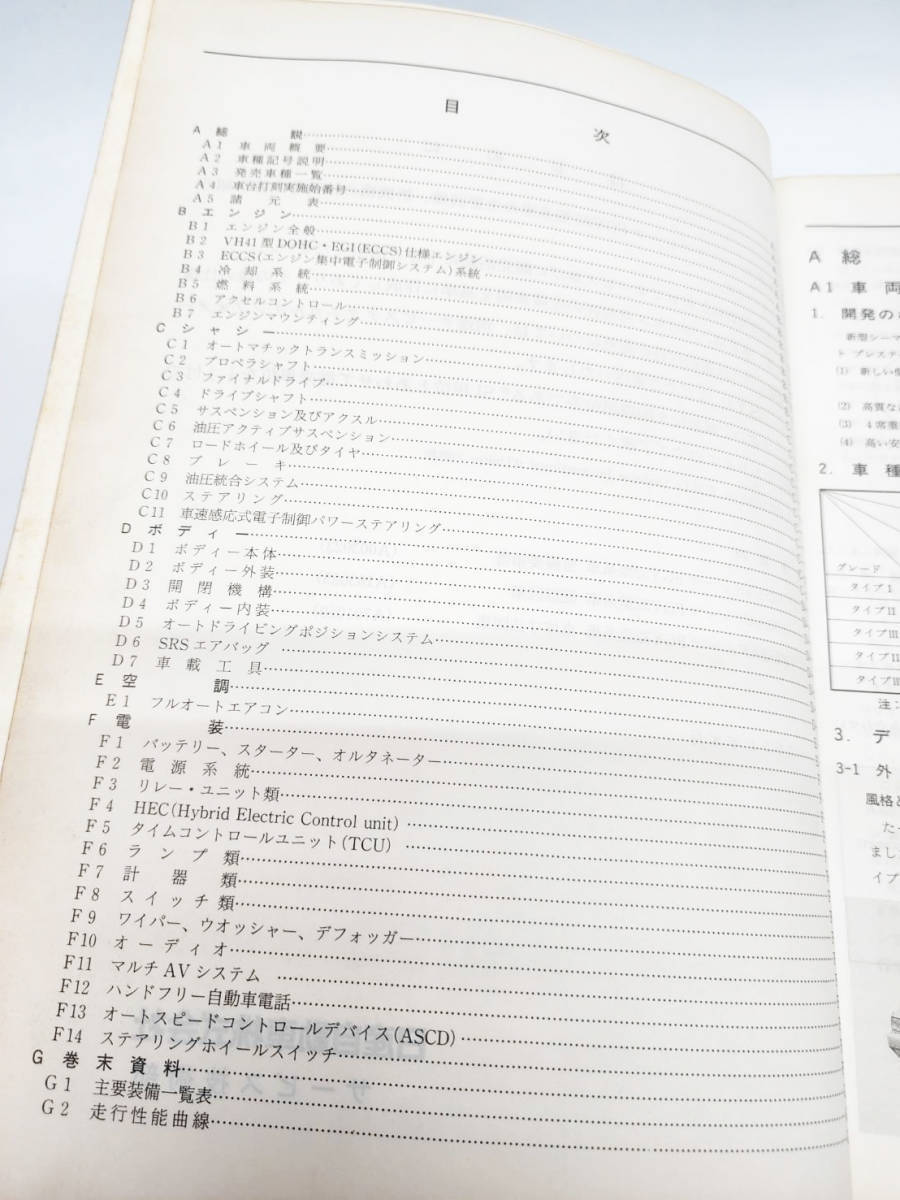 目　次
A 総　観
A 1 車両概要
A 2 車種記号説明
A 3 発売車種一覧
A 4 車台打刻実施始番号
A 5 諸元表
B エンジン
B 1 エンジン全般
B 2 VH41型DOHC・EGI(ECCS)仕様エンジン
B 3 ECCS(エンジン集中電子制御システム)系統
B 4 冷却系統
B 5 燃料系統
B 6 アクセルコントロール
B 7 エンジンマウンティング
C シャシー
C 1 オートマチックトランスミッション
C 2 プロペラシャフト
C 3 ファイナルドライブ
C 4 ドライブシャフト
C 5 サスペンション及びアクスル
C 6 油圧アクティブサスペンション
C 7 ロードホイール及びタイヤ
C 8 ブレーキ
C 9 油圧統合システム
C10 ステアリング
C11 車速感応式電子制御パワーステアリング
D ボディー
D 1 ボディー本体
D 2 ボディー外装
D 3 開閉機構
D 4 ボディー内装
D 5 オートドライビングポジションシステム
D 6 SRSエアバッグ
D 7 車載工具
E 空　調
E 1 フルオートエアコン
F 電　装
F 1 バッテリー、スターター、オルタネーター
F 2 電源系統
F 3 リレー・ユニット類
F 4 HEC(Hybrid Electric Control unit)
F 5 タイムコントロールユニット(TCU)
F 6 ランプ類
F 7 計器類
F 8 スイッチ類
F 9 ワイパー、ウオッシャー、デフォッガー
F10 オーディオ
F11 マルチAVシステム
F12 ハンドフリー自動車電話
F13 オートスピードコントロールデバイス(ASCD)
F14 ステアリングホイールスイッチ
G 巻末資料
G 1 主要装備一覧表
G 2 走行性能曲線
A 総
A1 車両
1. 開発の
新型シーマ
ト プレステ
(1) 新しい
(2) 高質な
(3) 4席重
(4) 高い安
2. 車種
グレード
タイプⅠ
タイプⅡ
タイプⅢ
タイプⅢ
タイプⅢ
注:
3. デ
3-1 外
風格と
たっ
まし
イプ